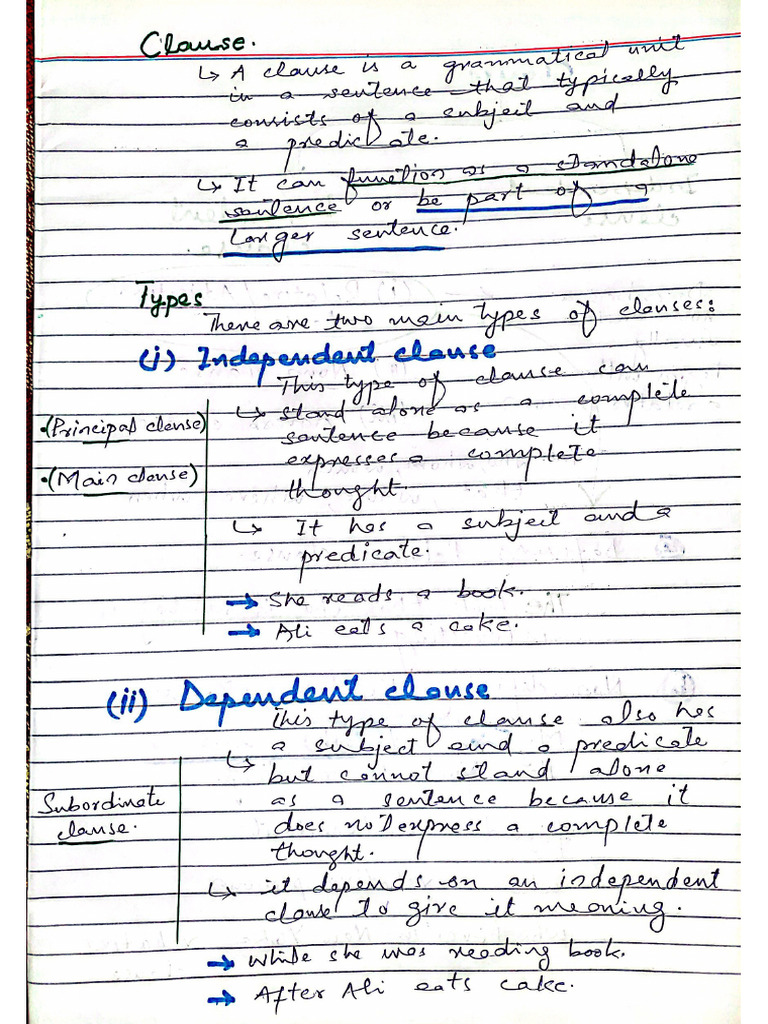 Clause.
↳ A clause is a grammatical unit
in a sentence that typically
consists of a subject and
a predicate.
↳ It can function as a standalone
sentence or be part of a
Larger sentence.
Types
There are two main types of clauses:
(i) Independent clause
This type of clause can
•(Principal clause) ↳ stand alone as a complete
sentence because it
•(Main clause) expresses a complete
thought.
↳ It has a subject and a
predicate.
→ She reads a book.
→ Ali eats a cake.
(ii) Dependent clause
This type of clause also has
↳ a subject and a predicate
but cannot stand alone
Subordinate as a sentence because it
clause. does not express a complete
thought.
↳ it depends on an independent
clause to give it meaning.
→ While she was reading book.
→ After Ali eats cake.